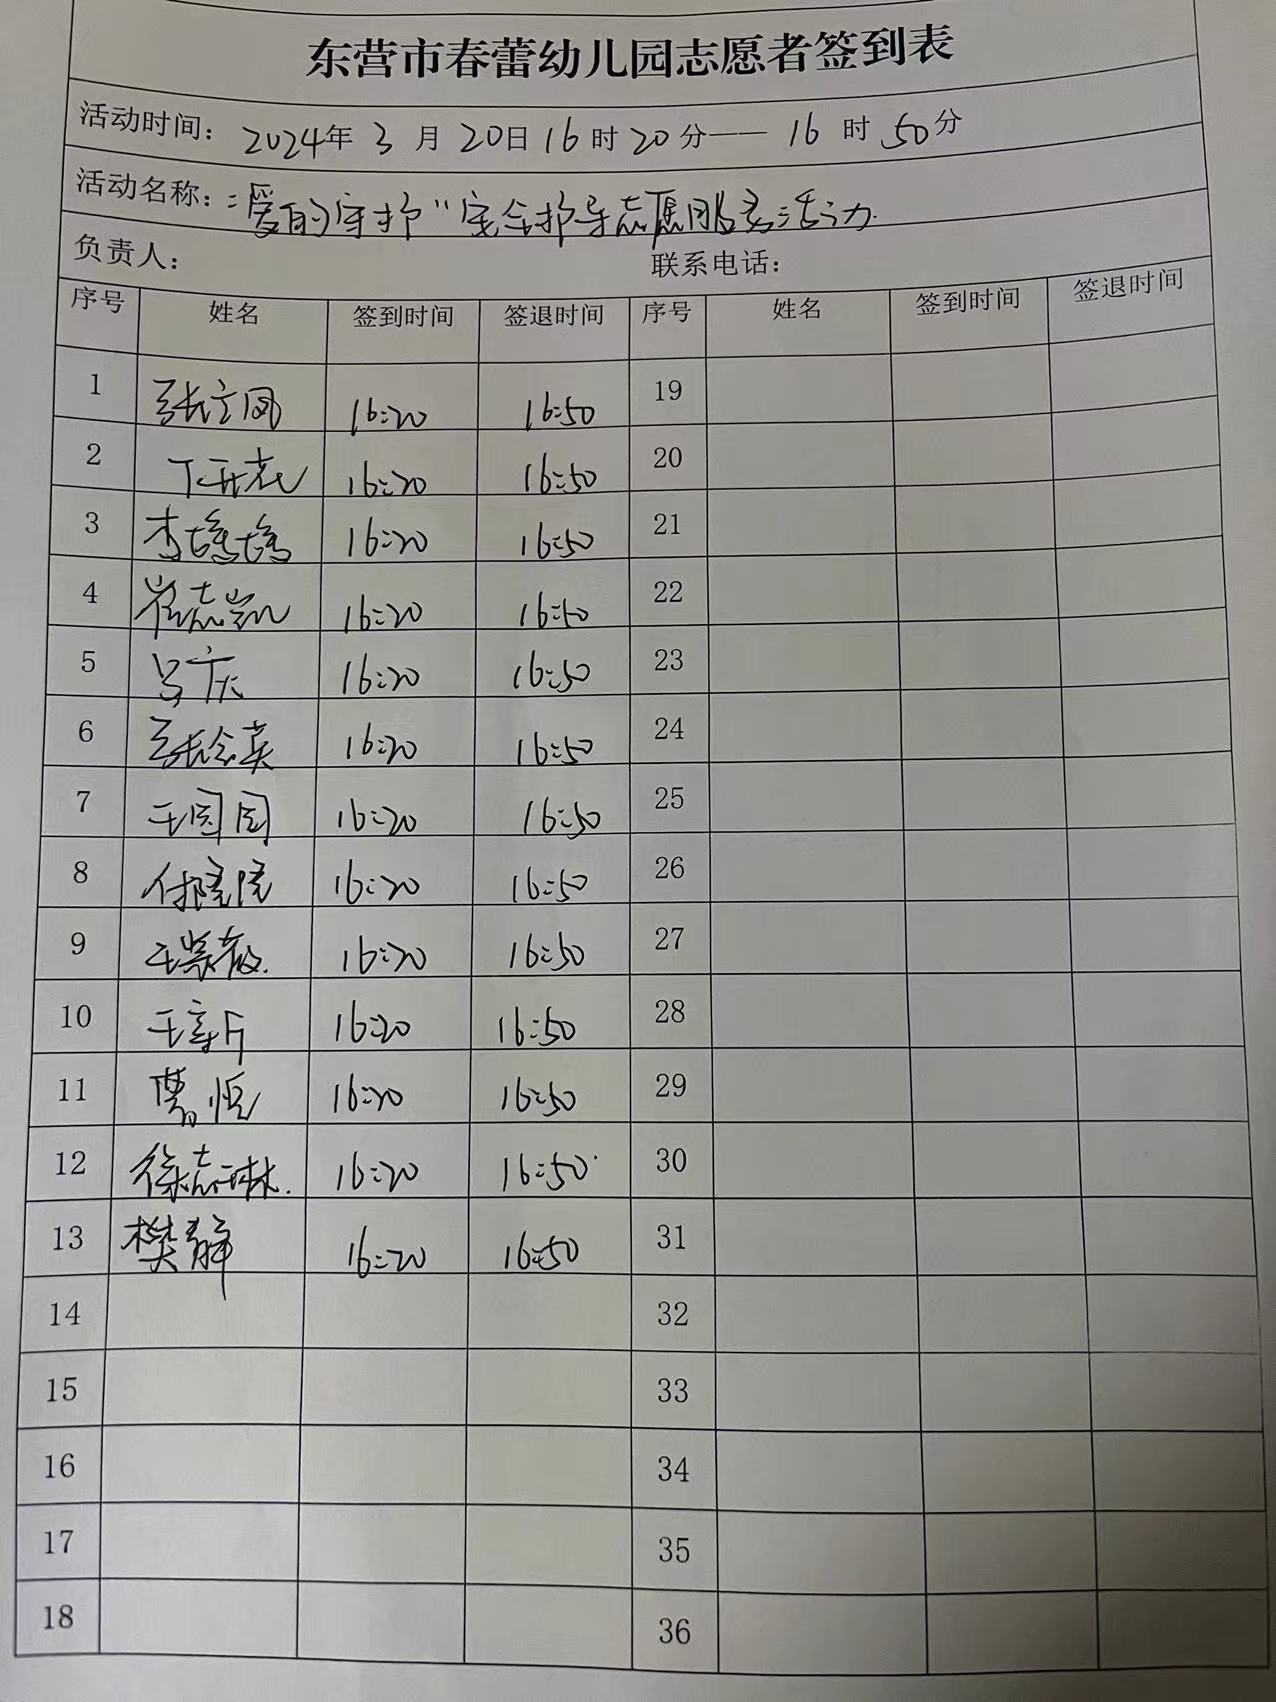 东营市春蕾幼儿园志愿者签到表
活动时间： 2024年 3 月 20日 16 时 20 分—— 16 时 50 分
活动名称："爱的守护"安全护导志愿服务活动.
负责人： 联系电话：
序号 姓名 签到时间 签退时间 序号 姓名 签到时间 签退时间
1 张立凤 16:20 16:50 19
2 16:20 16:50 20
3 李 16:20 16:50 21
4 崔志凯 16:20 16:50 22
5 吕庆 16:20 16:50 23
6 张念英 16:20 16:50 24
7 王园园 16:20 16:50 25
8 付 16:20 16:50 26
9 王 16:20 16:50 27
10 王 16:20 16:50 28
11 曹恒 16:20 16:50 29
12 徐志琳. 16:20 16:50 30
13 樊静 16:20 16:50 31
14 32
15 33
16 34
17 35
18 36